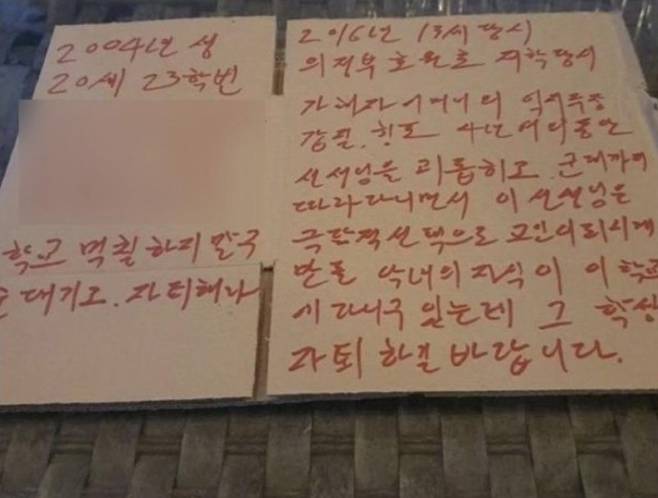 2004년 생
20세 23학번
학교 먹칠하지 말구
대기도. 자퇴해라
2016년 13세 당시
의정부 호원초 재학당시
가해자어머니의 억지주장
갑질. 횡포 4년여의동안
선생님을 괴롭히고. 군대까지
따라다니면서 이 선생님은
극단적선택으로 고인이되시게
만들 악녀의 자식이 이 학교
에 다니구 있는데 그 학생
자퇴 하길 바랍니다.